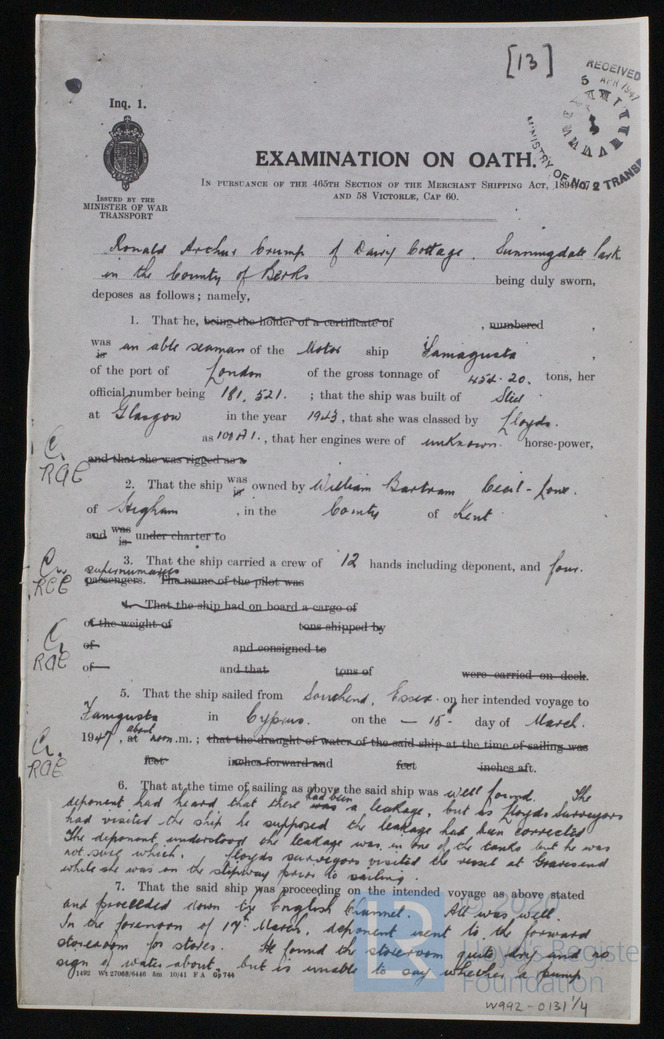 [13]
RECEIVED
5 APR 1947
MINISTRY OF TRANSPORT
No. 2
Inq. 1.
ISSUED BY THE
MINISTER OF WAR
TRANSPORT
EXAMINATION ON OATH.
IN PURSUANCE OF THE 465TH SECTION OF THE MERCHANT SHIPPING ACT, 1894, 57
AND 58 VICTORIÆ, CAP 60.
Ronald Archer Crump of Dairy Cottage, Sunningdale Park
in the County of Berks being duly sworn,
deposes as follows; namely,
1. That he, being the holder of a certificate of , numbered ,
was is an able seaman of the Motor ship Famagusta ,
of the port of London of the gross tonnage of 452.20. tons, her
official number being 181,521. ; that the ship was built of Steel
at Glasgow in the year 1943, that she was classed by Lloyds.
as 100A1., that her engines were of unknown. horse-power,
C.
RGE
and that she was rigged as a
2. That the ship was is owned by William Bartram Cecil-
of Higham , in the County of Kent
and was is under charter to
C.
RGE
3. That the ship carried a crew of 12 hands including deponent, and four.
supernumaries
passengers. The name of the pilot was
4. That the ship had on board a cargo of
of the weight of tons shipped by
C.
RGE
of and consigned to
of and that tons of were carried on deck.
5. That the ship sailed from Southend, Essex. on her intended voyage to
Famagusta in Cyprus. on the 15th day of March.
C.
RGE
1947, at about noon.m.; that the draught of water of the said ship at the time of sailing was
feet inches forward and feet inches aft.
6. That at the time of sailing as above the said ship was well found. The
deponent had heard that there was had been a leakage, but as Lloyds Surveyors
had visited the ship he supposed the leakage had been corrected
The deponent understood the leakage was in one of the tanks but he was
not sure which. Lloyds surveyors visited the vessel at Gravesend
while she was on the slipway prior to sailing.
7. That the said ship was proceeding on the intended voyage as above stated
and proceeded down the English Channel. All was well.
In the forenoon of 17th March, deponent went to the forward
storeroom for stores. He found the storeroom quite dry and no
sign of water about, but is unable to say whether a pump
1492 Wt 27068/6446 5m 10/41 F A Gp 744
© 2020
LR
Lloyd's Register
Foundation
W992-0131 1/4